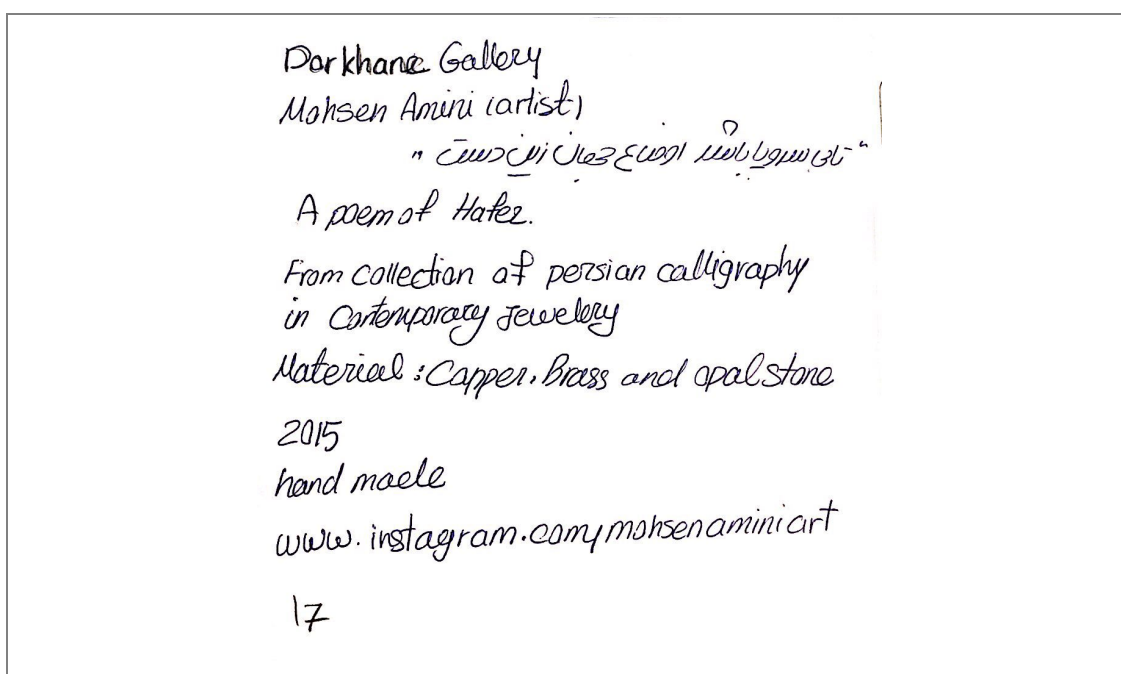 Dorkhane Gallery
Mohsen Amini (artist)
"تا بی سر و پا باشد اوضاع جهان زین دست"
A poem of Hafez.
From collection of persian calligraphy
in Contemporary Jewelery
Material : Copper, Brass and opal stone
2015
hand made
www.instagram.com/mohsenaminiart
17